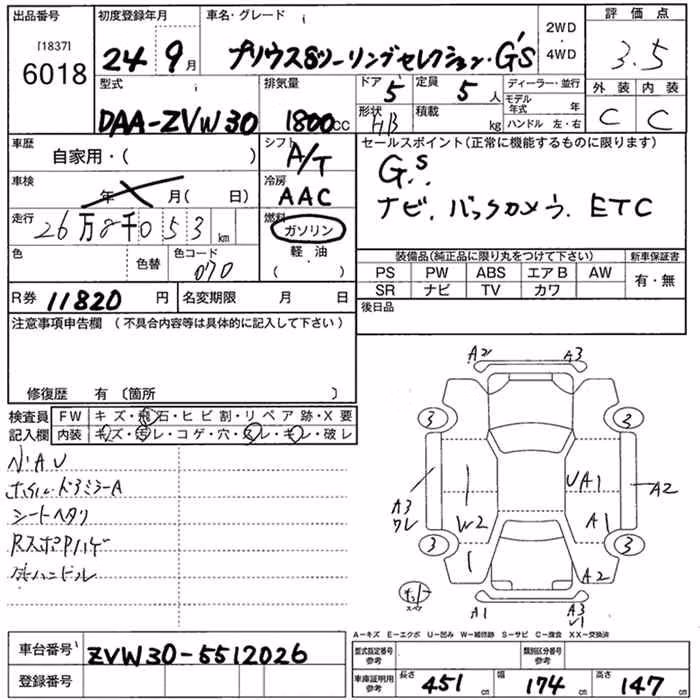 出品番号
[1837]
6018
初度登録年月
24 9月
車名・グレード
プリウスSツーリングセレクション・G'S
2WD
4WD
評価点
3.5
外装 内装
C C
型式
DAA-ZVW30
排気量
1800cc
ドア 5
形状 HB
定員 5人
積載 kg
ディーラー・並行
モデル年式 年
ハンドル 左・右
車歴
自家用・( )
シフト
A/T
セールスポイント(正常に機能するものに限ります)
G's
ナビ、バックカメラ、ETC
車検
年 月( 日)
冷房
AAC
走行
26万8千053km
燃料
ガソリン
軽・油
( )
色
色替
色コード
070
装備品(純正品に限り丸をつけて下さい)
PS PW ABS エアB AW
SR ナビ TV カワ
新車保証書
有・無
R券 11820円
名変期限 月 日
後日品
注意事項申告欄(不具合内容等は具体的に記入して下さい)
修復歴 有(箇所 )
検査員記入欄
FW キズ・飛石・ヒビ割・リペア跡・X要
内装 キズ・汚レ・コゲ・穴・スレ・キレ・破レ
ドアミラーA
シートヘタリ
ハンドル
A2 A3
3 3
A3
ワレ
W2
UA1
A2
A1
3 3
A2
A1 A3
A-キズ E-エクボ U-凹み W-補修跡 S-サビ C-腐食 XX-交換済
車台番号
ZVW30-5512026
登録番号
型式指定番号
参考
類別区分番号
参考
車庫証明用
参考
長さ 451cm
幅 174cm
高さ 147cm